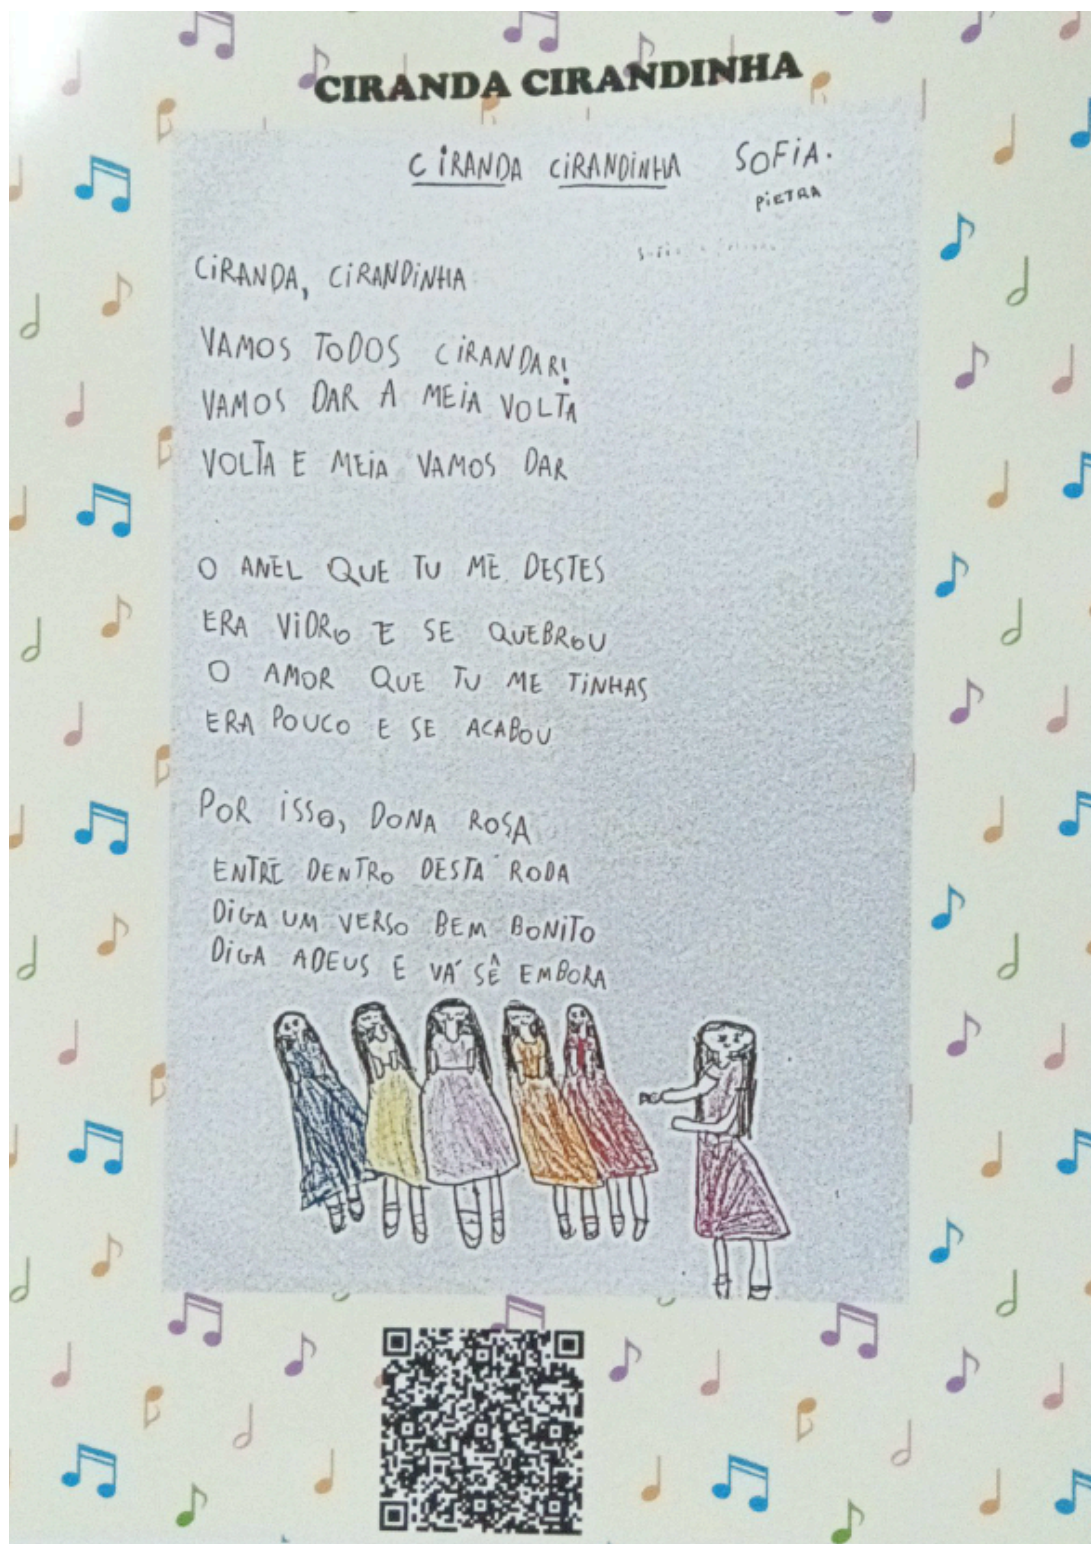 CIRANDA CIRANDINHA
CIRANDA CIRANDINHA SOFIA.
PIETRA
CIRANDA, CIRANDINHA
VAMOS TODOS CIRANDAR!
VAMOS DAR A MEIA VOLTA
VOLTA E MEIA VAMOS DAR
O ANEL QUE TU ME DESTES
ERA VIDRO E SE QUEBROU
O AMOR QUE TU ME TINHAS
ERA POUCO E SE ACABOU
POR ISSO, DONA ROSA
ENTRE DENTRO DESTA RODA
DIGA UM VERSO BEM BONITO
DIGA ADEUS E VÁ SÊ EMBORA